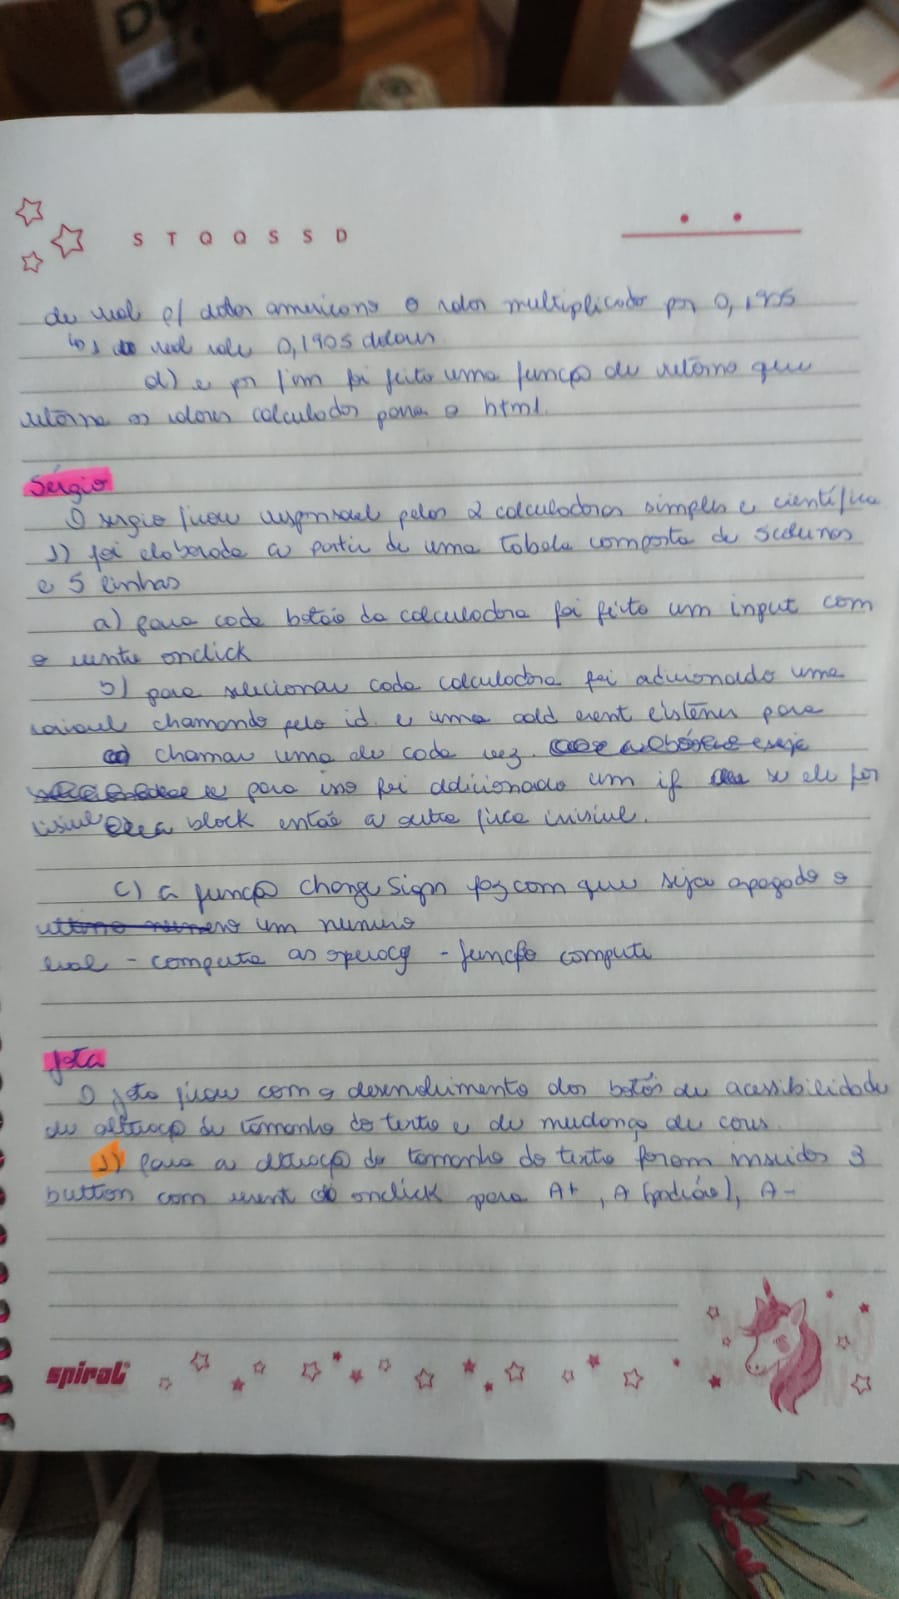 S T Q Q S S D
de real p/ dolar americano o valor multiplicado por 0,1905
real vale 0,1905 dolar
d) e por fim foi feito uma função de retorno que
retorna os valores calculados para o html.
Sérgio
O sergio ficou responsável pelas 2 calculadoras simples e científica
1) foi elaborada a partir de uma tabela composta de 5 colunas
e 5 linhas
a) para cada botão da calculadora foi feito um input com
o evento onclick
b) para selecionar cada calculadora foi adicionado uma
variavel chamando pelo id. e uma add event listener para
chamar uma de cada vez. seja
e para isso foi adicionado um if se ele for
visivel block então a outra fica invisivel.
c) a função changeSign faz com que seja apagado o
ultimo numero um numero
eval - computa as operaçõ - função compute
Jota
O jota ficou com o desenvolvimento dos botões de acessibilidade
de alteração de tamanho do texto e de mudança de cores.
1) Para a alteração do tamanho do texto foram inseridos 3
button com event de onclick para A+, A (padrão), A-
spiral